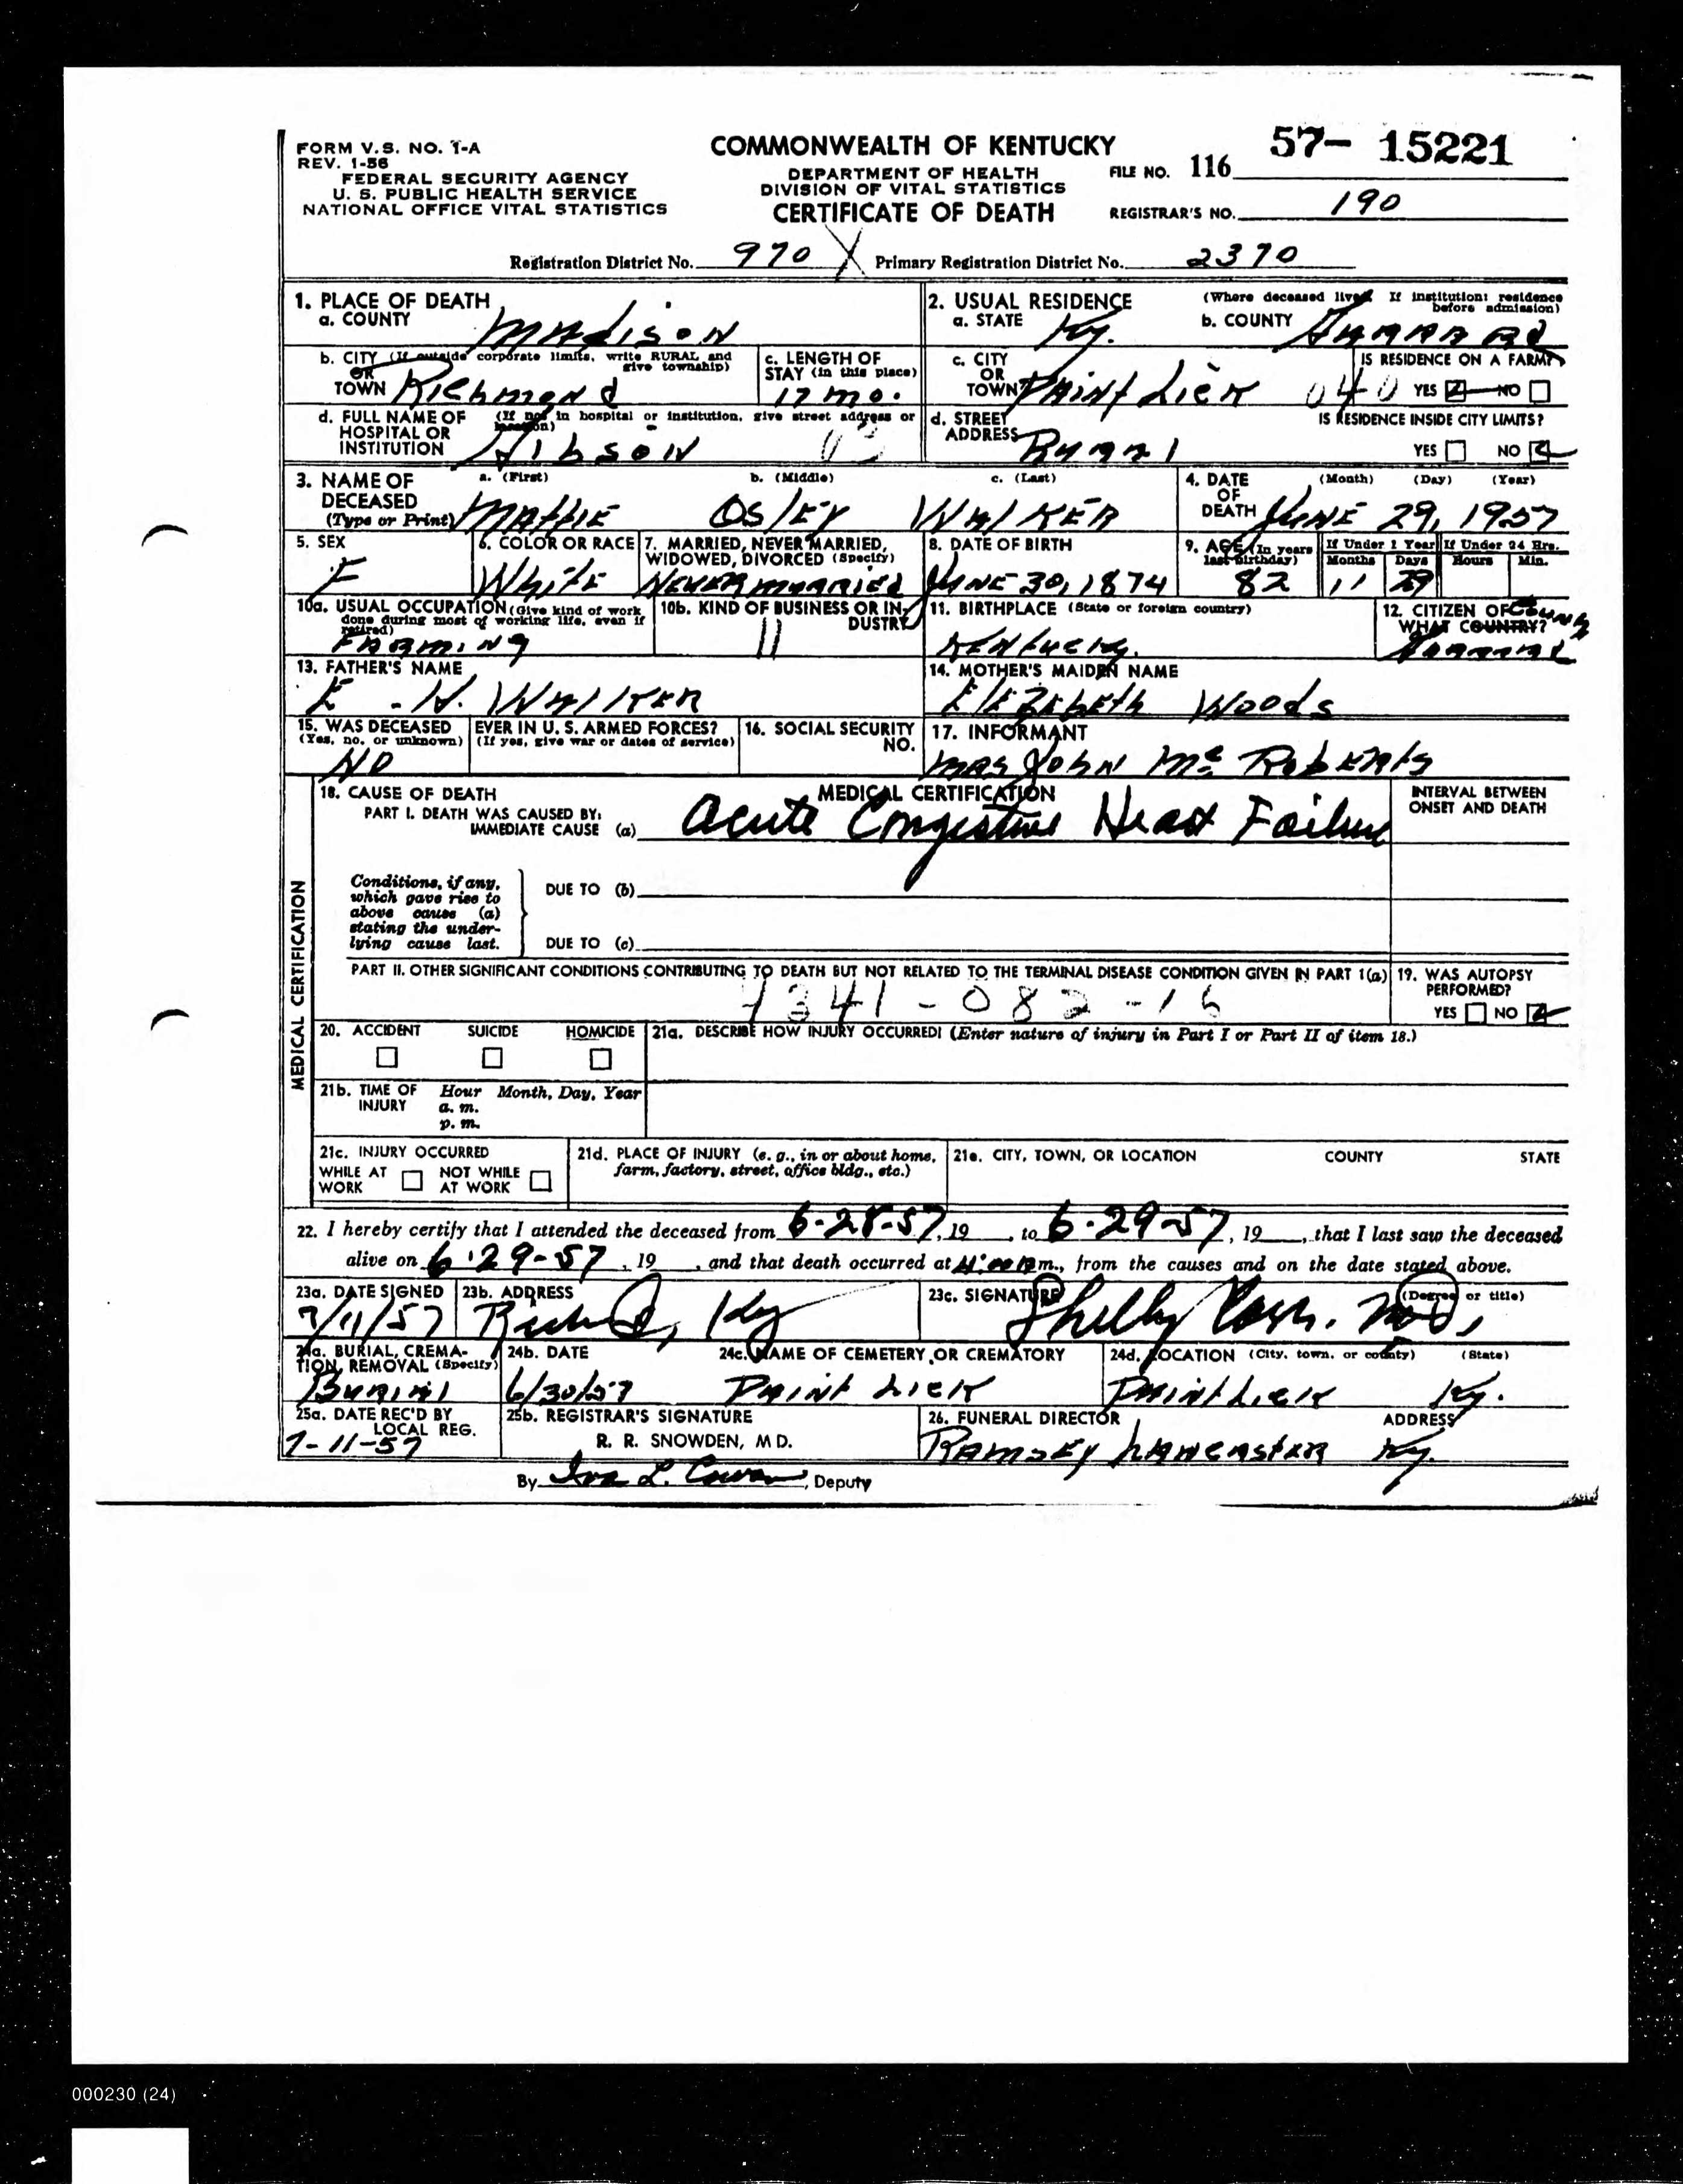 FORM V.S. NO. 1-A
REV. 1-56
FEDERAL SECURITY AGENCY
U. S. PUBLIC HEALTH SERVICE
NATIONAL OFFICE VITAL STATISTICS
COMMONWEALTH OF KENTUCKY
DEPARTMENT OF HEALTH
DIVISION OF VITAL STATISTICS
CERTIFICATE OF DEATH
57- 15221
FILE NO. 116
REGISTRAR'S NO. 190
Registration District No. 970 X Primary Registration District No. 2370
1. PLACE OF DEATH
a. COUNTY Madison
2. USUAL RESIDENCE (Where deceased lived. If institution: residence before admission)
a. STATE Ky. b. COUNTY Garrard
b. CITY (If outside corporate limits, write RURAL and give township)
OR TOWN Richmond
c. LENGTH OF STAY (in this place)
17 mo.
c. CITY OR TOWN Paint Lick 040
IS RESIDENCE ON A FARM?
YES NO
d. FULL NAME OF HOSPITAL OR INSTITUTION (If not in hospital or institution, give street address or location)
Gibson
d. STREET ADDRESS Rural
IS RESIDENCE INSIDE CITY LIMITS?
YES NO
3. NAME OF DECEASED (Type or Print)
a. (First) b. (Middle) c. (Last)
Mattie Osley Walker
4. DATE OF DEATH (Month) (Day) (Year)
June 29, 1957
5. SEX
F
6. COLOR OR RACE
White
7. MARRIED, NEVER MARRIED, WIDOWED, DIVORCED (Specify)
Never married
8. DATE OF BIRTH
June 30, 1874
9. AGE (In years last birthday)
82
If Under 1 Year If Under 24 Hrs.
Months Days Hours Min.
11 29
10a. USUAL OCCUPATION (Give kind of work done during most of working life, even if retired)
Farming
10b. KIND OF BUSINESS OR INDUSTRY
11
11. BIRTHPLACE (State or foreign country)
Kentucky.
12. CITIZEN OF WHAT COUNTRY? County
Garrard
13. FATHER'S NAME
E. H. Walker
14. MOTHER'S MAIDEN NAME
Elezebeth Woods
15. WAS DECEASED EVER IN U. S. ARMED FORCES?
(Yes, no, or unknown) (If yes, give war or dates of service)
No
16. SOCIAL SECURITY NO.
17. INFORMANT
Mrs John Mc Roberts
MEDICAL CERTIFICATION
18. CAUSE OF DEATH
MEDICAL CERTIFICATION
INTERVAL BETWEEN ONSET AND DEATH
PART I. DEATH WAS CAUSED BY:
IMMEDIATE CAUSE (a) Acute Congestive Heart Failure
Conditions, if any, which gave rise to above cause (a) stating the underlying cause last.
DUE TO (b)
DUE TO (c)
PART II. OTHER SIGNIFICANT CONDITIONS CONTRIBUTING TO DEATH BUT NOT RELATED TO THE TERMINAL DISEASE CONDITION GIVEN IN PART 1(a)
7341-082-16
19. WAS AUTOPSY PERFORMED?
YES NO
20. ACCIDENT SUICIDE HOMICIDE
21a. DESCRIBE HOW INJURY OCCURRED! (Enter nature of injury in Part I or Part II of item 18.)
21b. TIME OF INJURY Hour Month, Day, Year
a. m.
p. m.
21c. INJURY OCCURRED
WHILE AT WORK NOT WHILE AT WORK
21d. PLACE OF INJURY (e. g., in or about home, farm, factory, street, office bldg., etc.)
21e. CITY, TOWN, OR LOCATION COUNTY STATE
22. I hereby certify that I attended the deceased from 6-28-57, 19 , to 6-29-57, 19 , that I last saw the deceased
alive on 6-29-57, 19 , and that death occurred at m., from the causes and on the date stated above.
23a. DATE SIGNED
7/11/57
23b. ADDRESS
Richmond, Ky
23c. SIGNATURE (Degree or title)
Shelby Carr. MD,
24a. BURIAL, CREMATION, REMOVAL (Specify)
Burial
24b. DATE
6/30/57
24c. NAME OF CEMETERY OR CREMATORY
Paint Lick
24d. LOCATION (City, town, or county) (State)
Paint Lick Ky.
25a. DATE REC'D BY LOCAL REG.
7-11-57
25b. REGISTRAR'S SIGNATURE
R. R. SNOWDEN, M D.
By Iva L. Cowan, Deputy
26. FUNERAL DIRECTOR ADDRESS
Ramsey Lancaster Ky.
000230 (24)